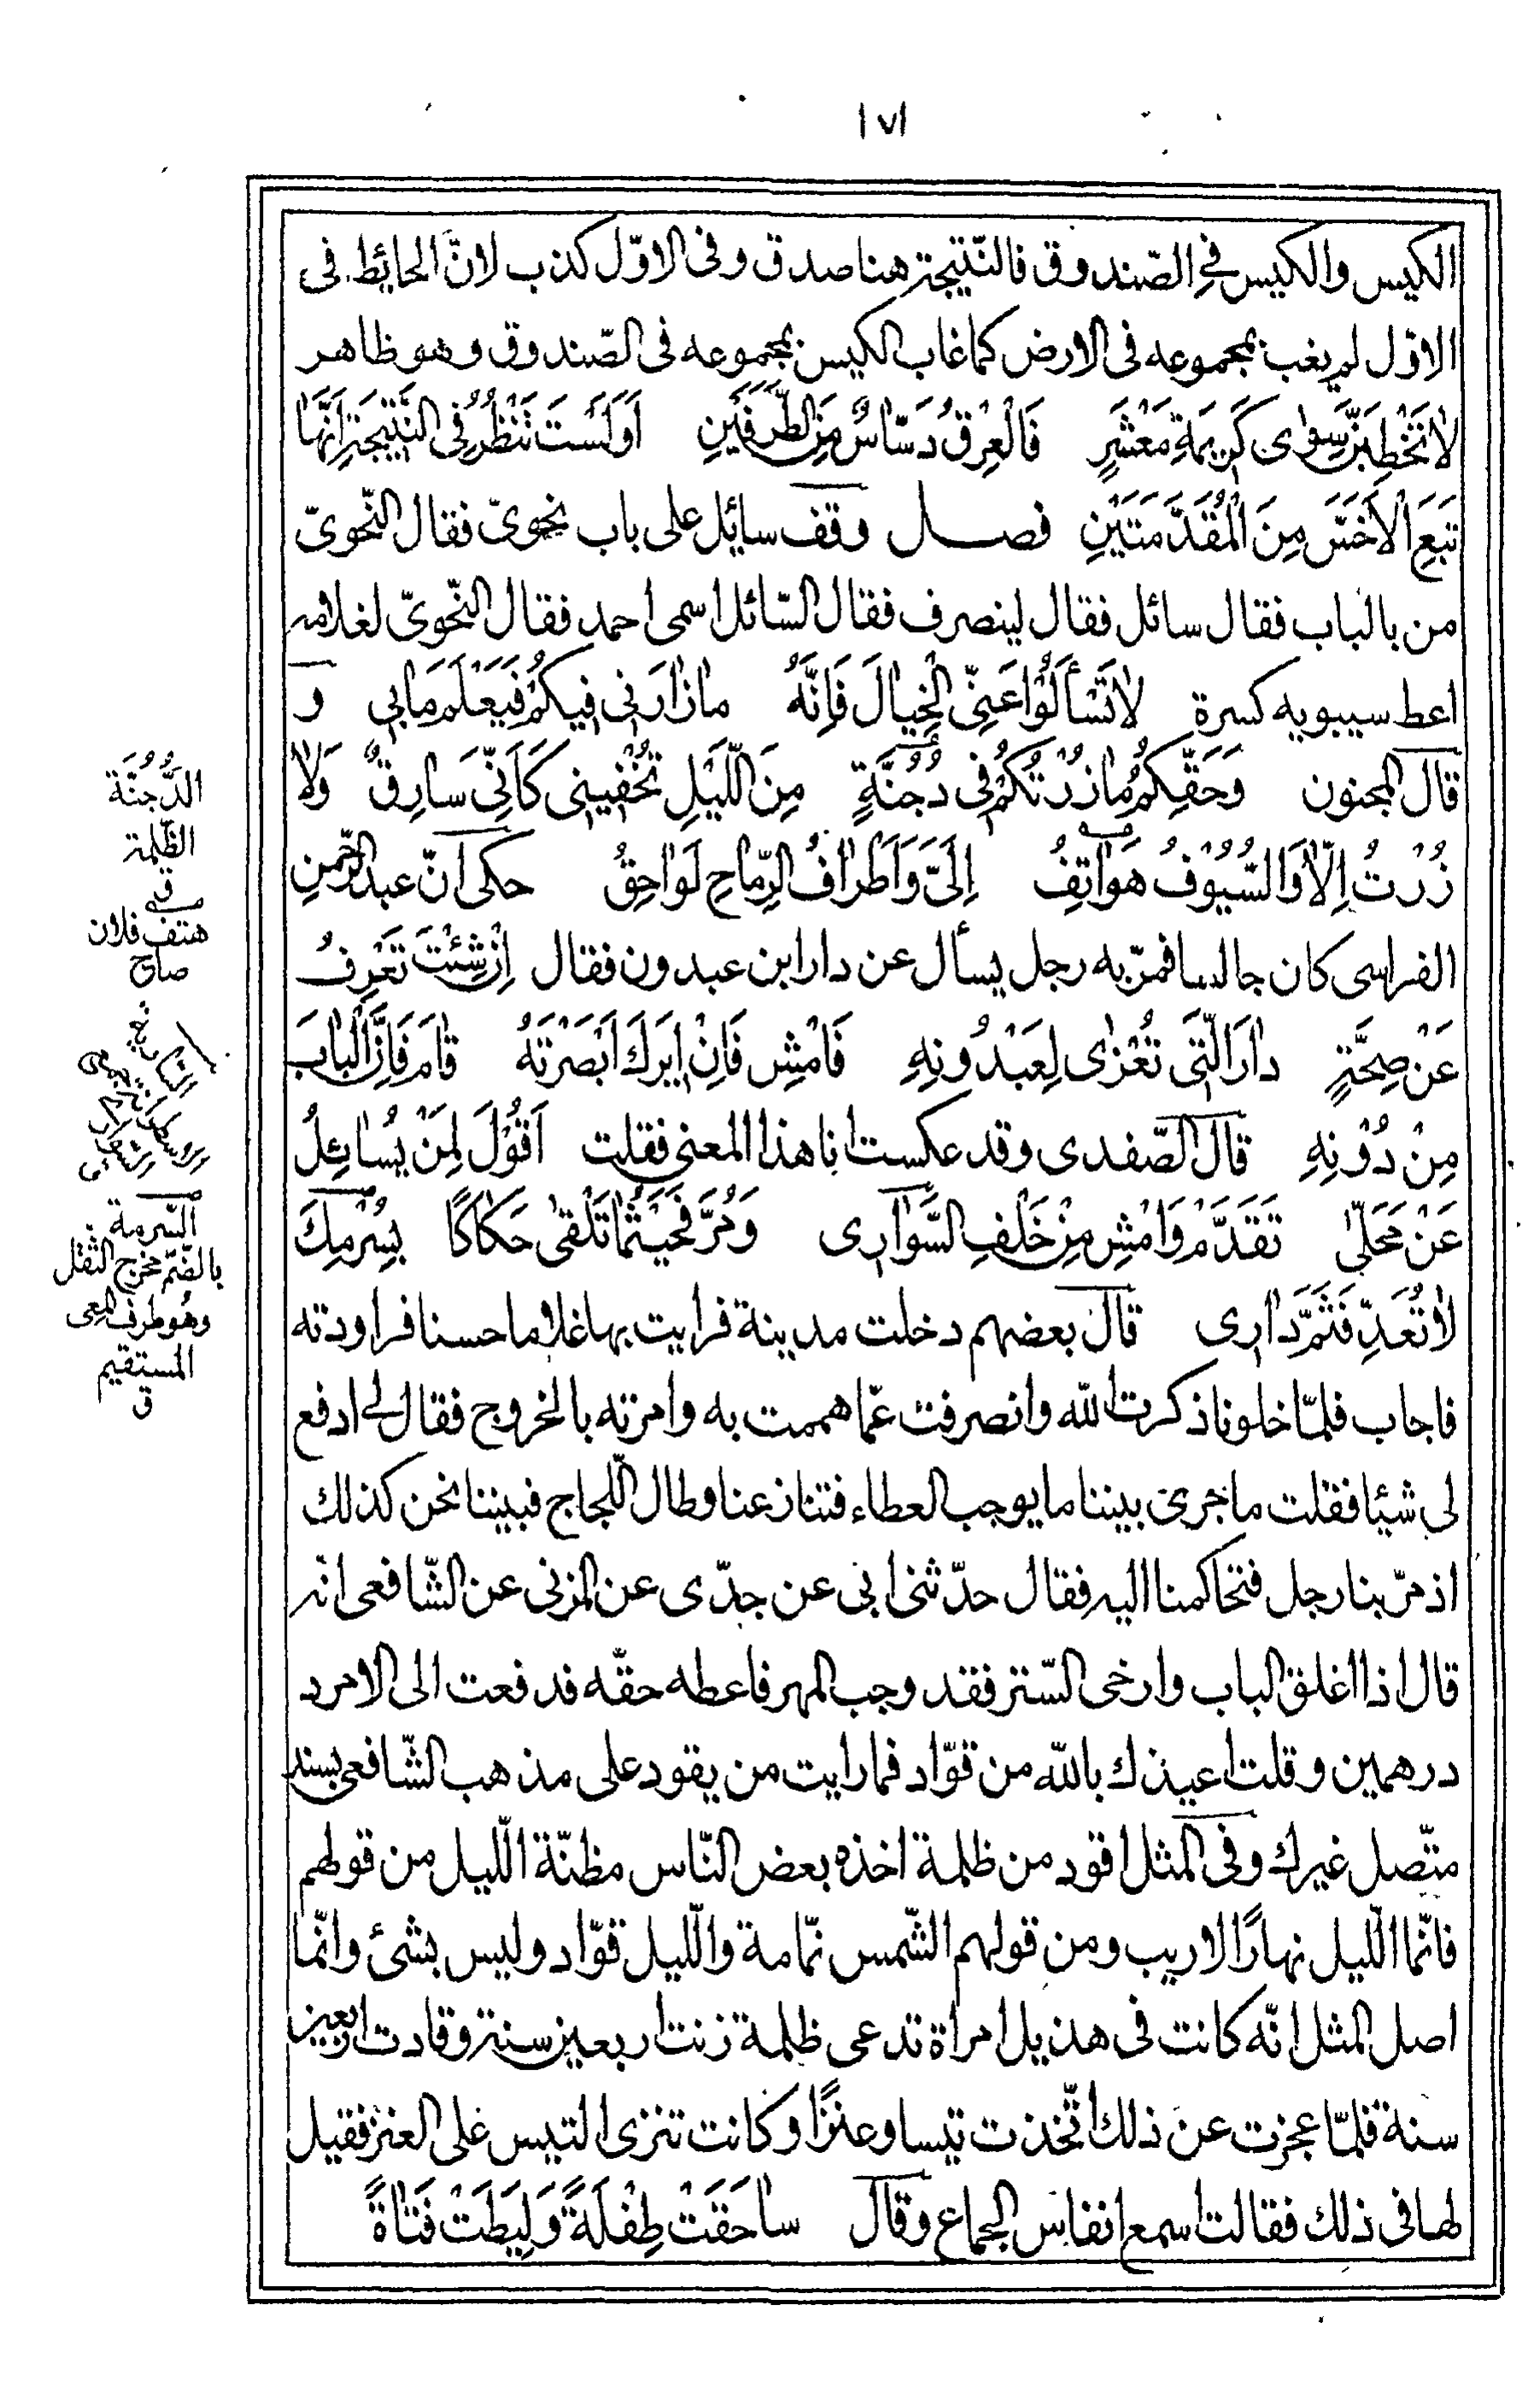 ١٧١
الكيس والكيس في الصّندوق فالنّتيجة هنا صدق وفى الاوّل كذب لانّ الحائط فى
الاوّل لم يغب بمجموعه فى الارض كما غاب الكيس بمجموعه فى الصّندوق وهو ظاهر
لَا تَخْطِبَنَّ سِوٰى كَرِيمَةِ مَعْشَرٍ فَالْعِرْقُ دَسّاسٌ مِنَ الطَّرَفَيْنِ اَوَلَسْتَ تَنْظُرُ فِى النَّتِيجَةِ اَنَّهَا
تَبَعِ الْاَخَسَّ مِنَ الْمُقَدَّمَتَيْنِ فصل وقف سائل على باب نحوىّ فقال النّحوىّ
من بالباب فقال سائل فقال لينصرف فقال السّائل اسمى احمد فقال النّحوىّ لغلامه
اعط سيبويه كسرة لَا تَسْأَلُوْا عَنِّى الْخِيالَ فَاِنَّهُ مازٰارَنِى فِيكُمْ فَيَعْلَمَ مَابِى و
قال المجنون وَحَقِّكُمُ مازُرْتُكُمْ فِى دُجُنَّةٍ مِنَ اللَّيْلِ تُخْفِينِى كَاَنِّى سَارِقٌ وَلَا
زُرْتُ اِلّا وَالسُّيُوْفُ هَوٰاتِفُ اِلَىَّ وَاَطْرٰافُ الرِّماحِ لَوٰاحِقُ حكى انّ عبد الرّحمنِ
الفراسى كان جالسا فمرّ به رجل يسأل عن دار ابن عبدون فقال اِنْ شِئْتَ تَعْرِفُ
عَنْ صِحَّةٍ دارَ الَّتِى تُعْزٰى لِعَبْدُونِهِ فَامْشِ فَاِنْ اَيْرَكَ اَبْصَرْتَهُ قٰامَ فَاِنَّ الْبٰابَ
مِنْ دُوْنِهِ قال الصّفدى وقد عكست انا هذا المعنى فقلت اَقُوْلُ لِمَنْ يُسٰائِلُ
عَنْ مَحَلِّى تَقَدَّمْ وَامْشِ مِنْ خَلْفِ السَّوٰارِى وَمُرَّ فَحَيْثُمٰا تَلْقٰى حَكٰاكًا بِسُرْمِكَ
لٰا تُعَدِّ فَثَمَّ دٰارِى قال بعضهم دخلت مدينة فرايت بها غلاما حسنا فراودته
فاجاب فلمّا خلونا ذكرت الله وانصرفت عمّا هممت به وامرته بالخروج فقال لى ادفع
لى شيئا فقلت ما جرى بيننا ما يوجب العطاء فتنازعنا وطال اللّجاج فبيننا نحن كذلك
اذ مرّ بنا رجل فتحاكمنا اليه فقال حدّثنى ابى عن جدّى عن المزنى عن الشّافعى انه
قال اذا اغلق الباب وارخى السّتر فقد وجب المهر فاعطه حقّه فدفعت الى الامرد
درهمين وقلت اعيذك بالله من قوّاد فما رايت من يقود على مذهب الشّافعى بسند
متّصل غيرك وفى المثل اقود من ظلمة اخذه بعض النّاس مظنّة اللّيل من قولهم
فانّما اللّيل نهارُ الاريب ومن قولهم الشّمس نمّامة واللّيل قوّاد وليس بشئ وانّما
اصل المثل انّه كانت فى هذيل امراة تدعى ظلمة زنت اربعين سنة وقادت اربعين
سنة فلمّا عجزت عن ذلك اتّخذت تيسا وعنزًا وكانت تنزى التيس على العنز فقيل
لها فى ذلك فقالت اسمع انفاس الجماع وقال ساحَقَتْ طِفْلَةً وَلِيطَتْ فَتٰاةً
الدُّجُنَّة
الظّلمة
ق
هتف فلان
صاح
السارية
الاسطوانة
السّرمة
بالضّم مخرج الثفل
وهو طرف المعى
المستقيم
ق